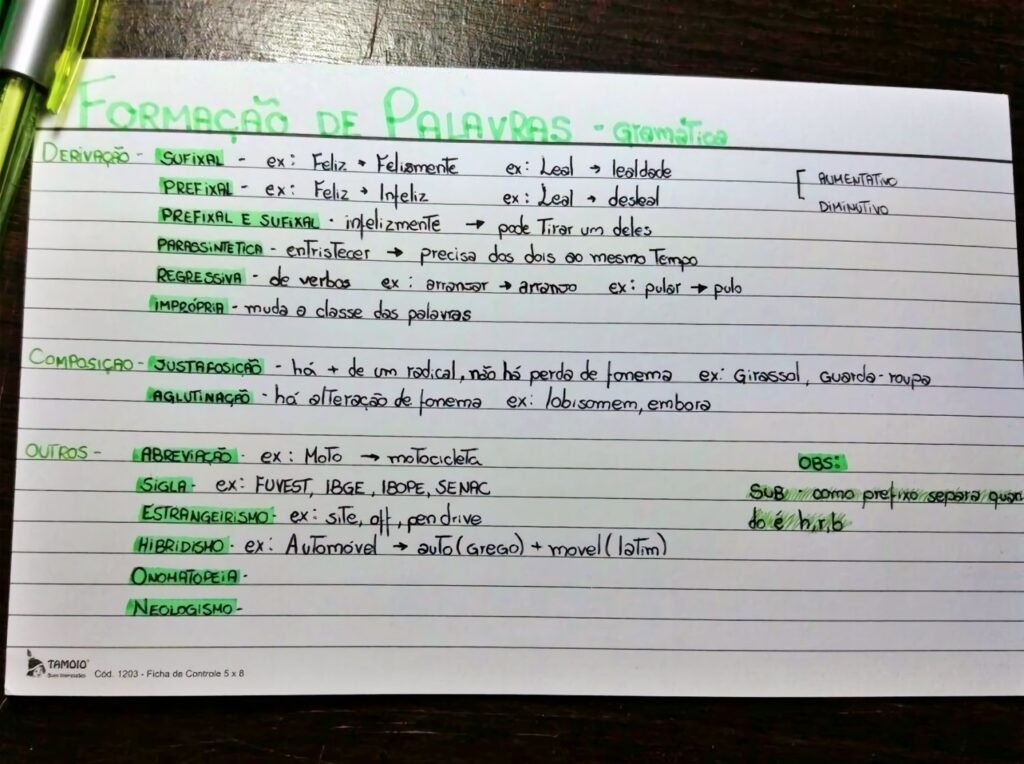 FORMAÇÃO DE PALAVRAS - Gramática
DERIVAÇÃO - SUFIXAL - ex: Feliz → Felizmente ex: Leal → lealdade
[ AUMENTATIVO
PREFIXAL - ex: Feliz → Infeliz ex: Leal → desleal
DIMINUTIVO
PREFIXAL E SUFIXAL - infelizmente → pode Tirar um deles
PARASSINTÉTICA - entristecer → precisa dos dois ao mesmo Tempo
REGRESSIVA - de verbos ex: arranjar → arranjo ex: pular → pulo
IMPRÓPRIA - muda a classe das palavras
COMPOSIÇÃO - JUSTAPOSIÇÃO - há + de um radical, não há perda de fonema ex: Girassol, Guarda-roupa
AGLUTINAÇÃO - há alteração de fonema ex: lobisomem, embora
OUTROS - ABREVIAÇÃO - ex: MoTo → moTocicleTa
OBS:
SIGLA - ex: FUVEST, IBGE, IBOPE, SENAC
SUB - como prefixo separa quan
ESTRANGEIRISMO - ex: site, off, pen drive
do é h,r,b
HIBRIDISMO - ex: Automóvel → auTo (Grego) + movel (laTim)
ONOMATOPEIA -
NEOLOGISMO -
TAMOIO
Cód. 1203 - Ficha de Controle 5 x 8